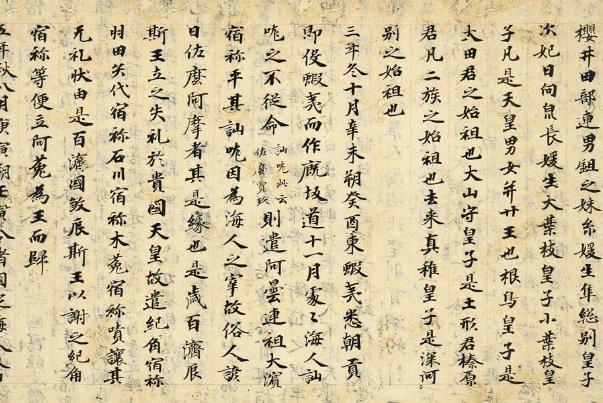 櫻井田部連男鉏之妹糸媛生隼総別皇子
次妃日向泉長媛生大葉枝皇子小葉枝皇
子凡是天皇男女并廿王也根鳥皇子是
大田君之始祖也大山守皇子是土形君榛原
君凡二族之始祖也去来真稚皇子是深河
別之始祖也
三年冬十月辛未朔癸酉東蝦夷悉朝貢
即役蝦夷而作厩坂道十一月處〻海人訕
哤之不從命訕哤此云佐麼賣玖則遣阿曇連祖大濱
宿祢平其訕哤因為海人之宰故俗人諺
曰佐麼阿摩者其是縁也是歳百濟辰
斯王立之失礼於貴國天皇故遣紀角宿祢
羽田矢代宿祢石川宿祢木菟宿祢嘖讓其
无礼狀由是百濟國殺辰斯王以謝之紀角
宿祢等便立阿菟為王而歸
五年秋八月庚寅朔壬寅令諸國定海人